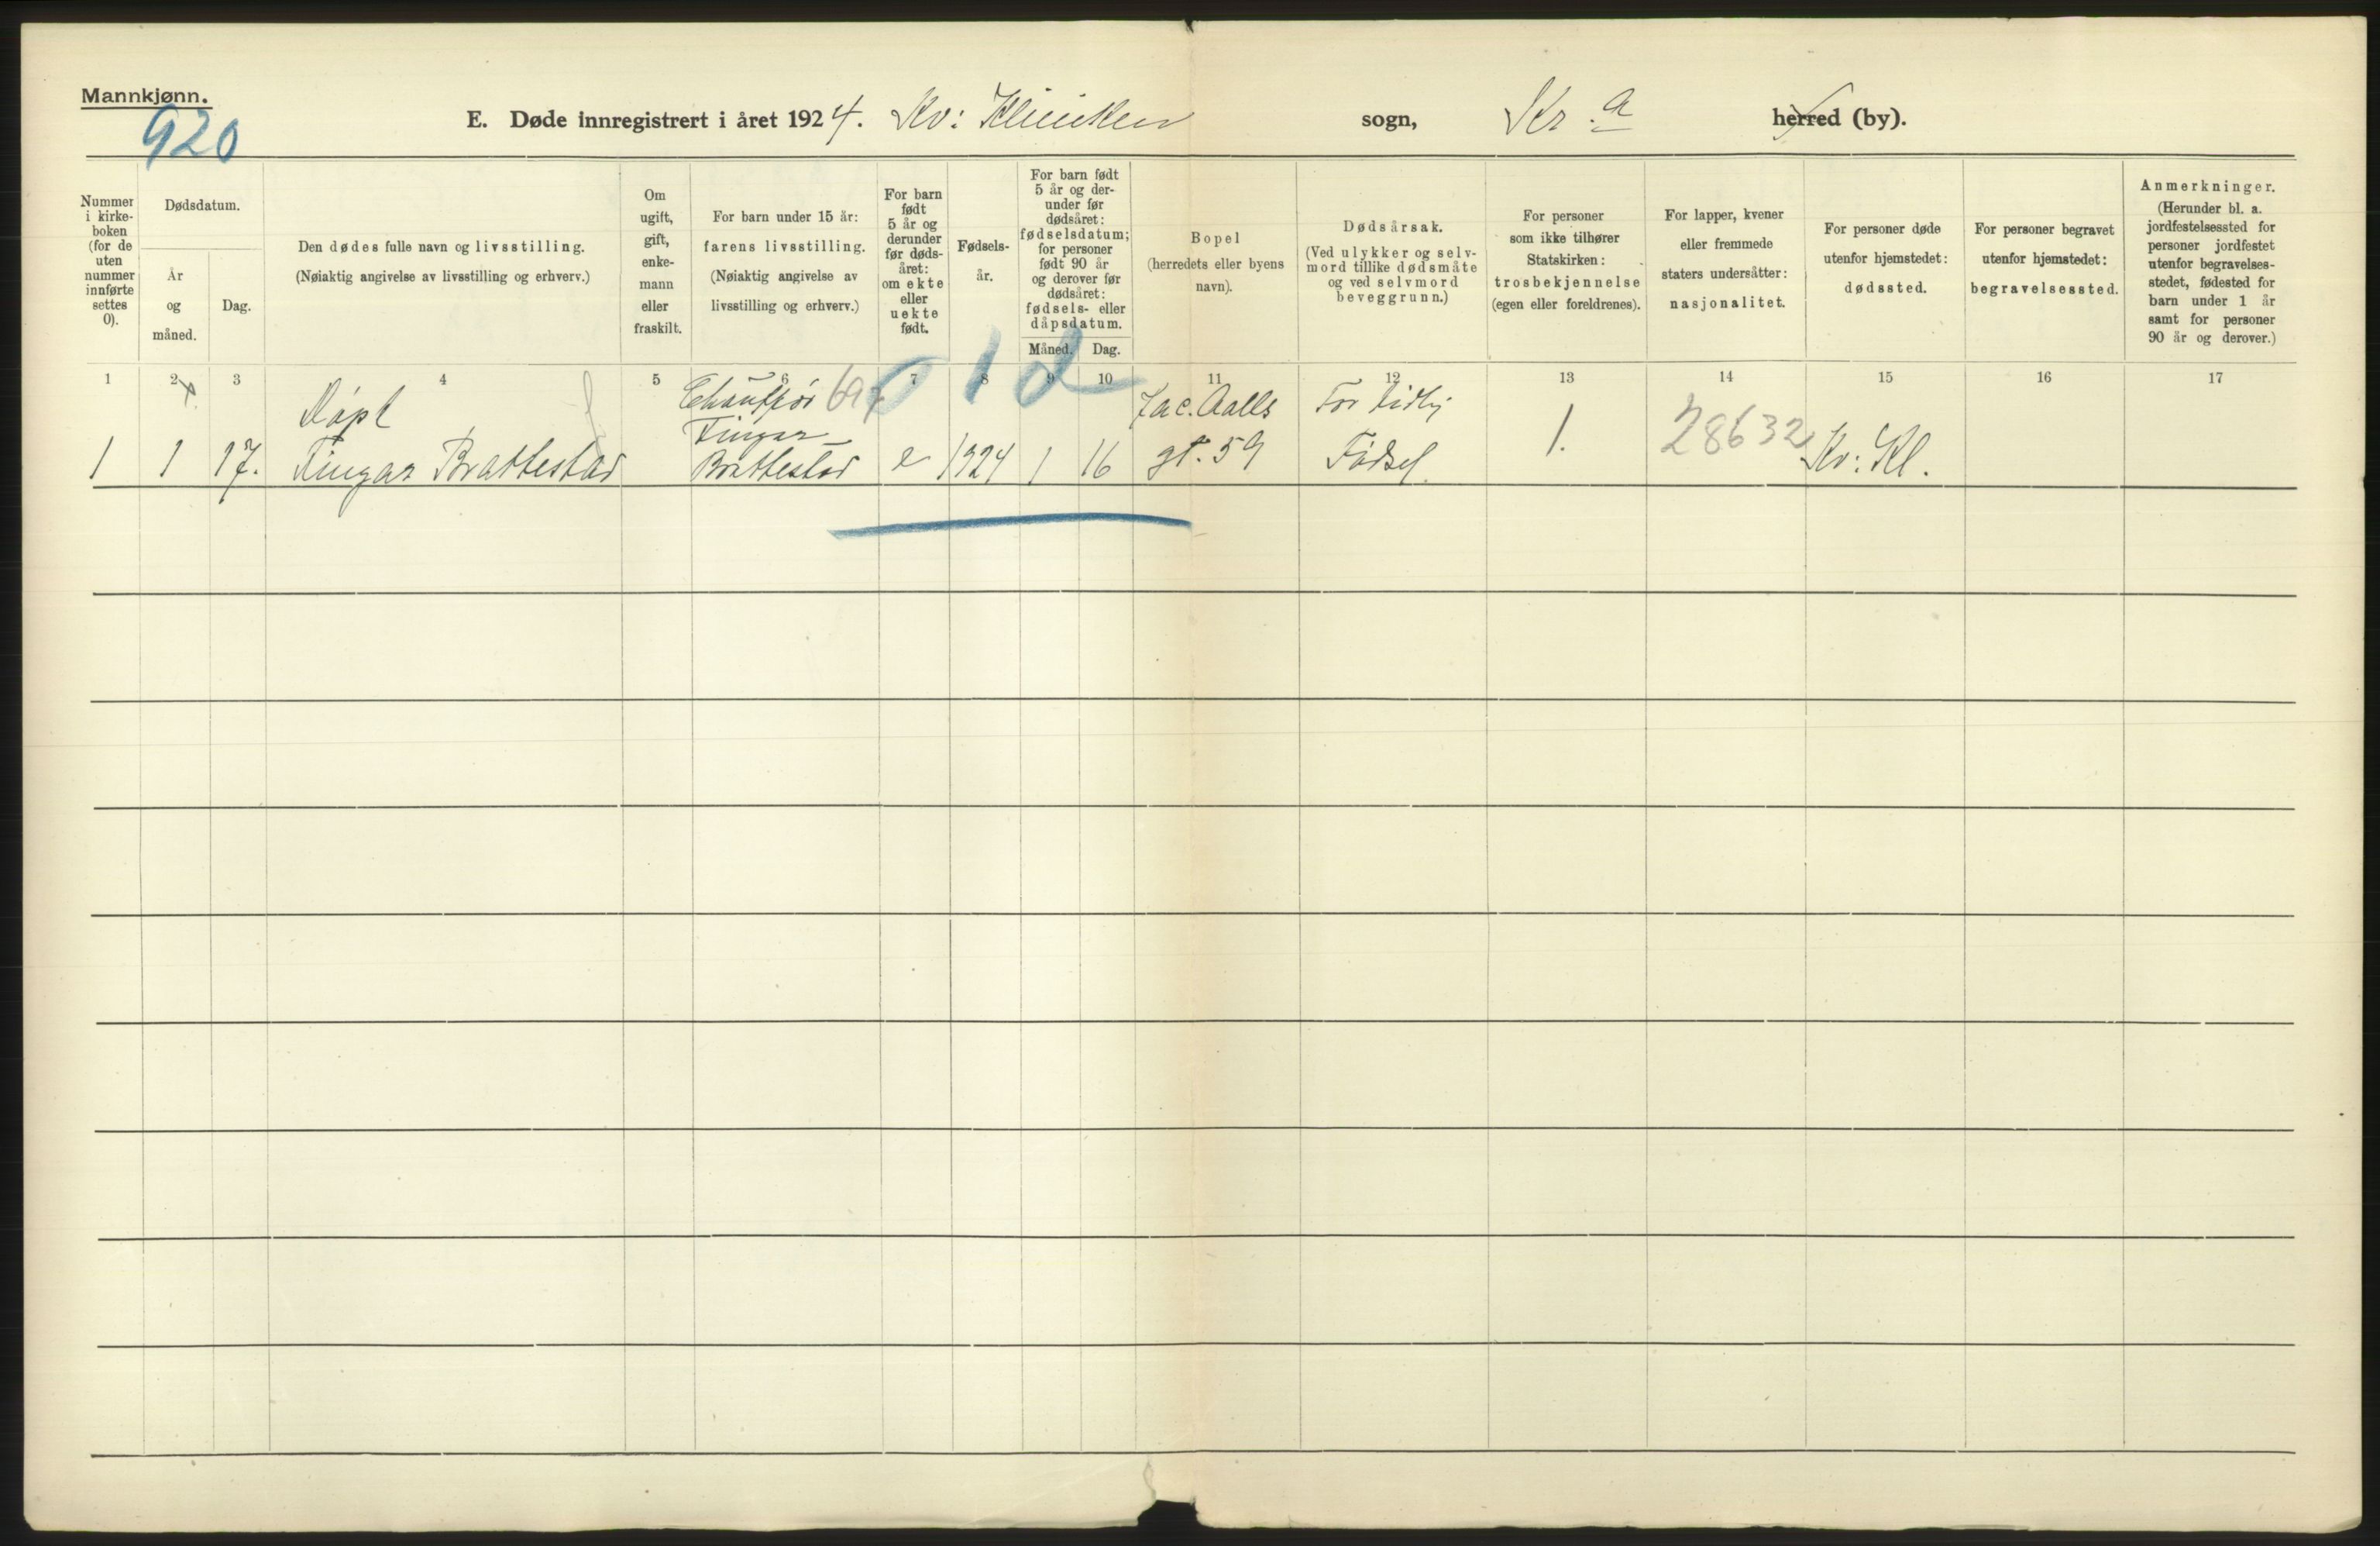 Mannkjønn.
920
E. Døde innregistrert i året 1924. Kv: Kliniken sogn, Kr.a herred (by).
Nummer i kirke-boken (for de uten nummer innførte settes 0).
Dødsdatum.
År og måned.
Dag.
Den dødes fulle navn og livsstilling.
(Nøiaktig angivelse av livsstilling og erhverv.)
Om ugift, gift, enke-mann eller fraskilt.
For barn under 15 år:
farens livsstilling.
(Nøiaktig angivelse av livsstilling og erhverv.)
For barn født 5 år og derunder før døds-året: om ekte eller uekte født.
Fødsels-år.
For barn født 5 år og der-under før dødsåret: fødselsdatum; for personer født 90 år og derover før dødsåret: fødsels- eller dåpsdatum.
Måned. Dag.
Bopel
(herredets eller byens navn).
Dødsårsak.
(Ved ulykker og selv-mord tillike dødsmåte og ved selvmord beveggrunn.)
For personer som ikke tilhører Statskirken: trosbekjennelse (egen eller foreldrenes).
For lapper, kvener eller fremmede staters undersåtter: nasjonalitet.
For personer døde utenfor hjemstedet: dødssted.
For personer begravet utenfor hjemstedet: begravelsessted.
Anmerkninger.
(Herunder bl. a. jordfestelsessted for personer jordfestet utenfor begravelses-stedet, fødested for barn under 1 år samt for personer 90 år og derover.)
1 2 3 4 5 6 7 8 9 10 11 12 13 14 15 16 17
Døpt
Chauffør
Jac. Aalls
For tidlig
Fingar
1 1 17. Fingar Brattestad Brattestad e 1924 1 16 gt. 59 Fødsel. 1. 28632 Kv: Kl.